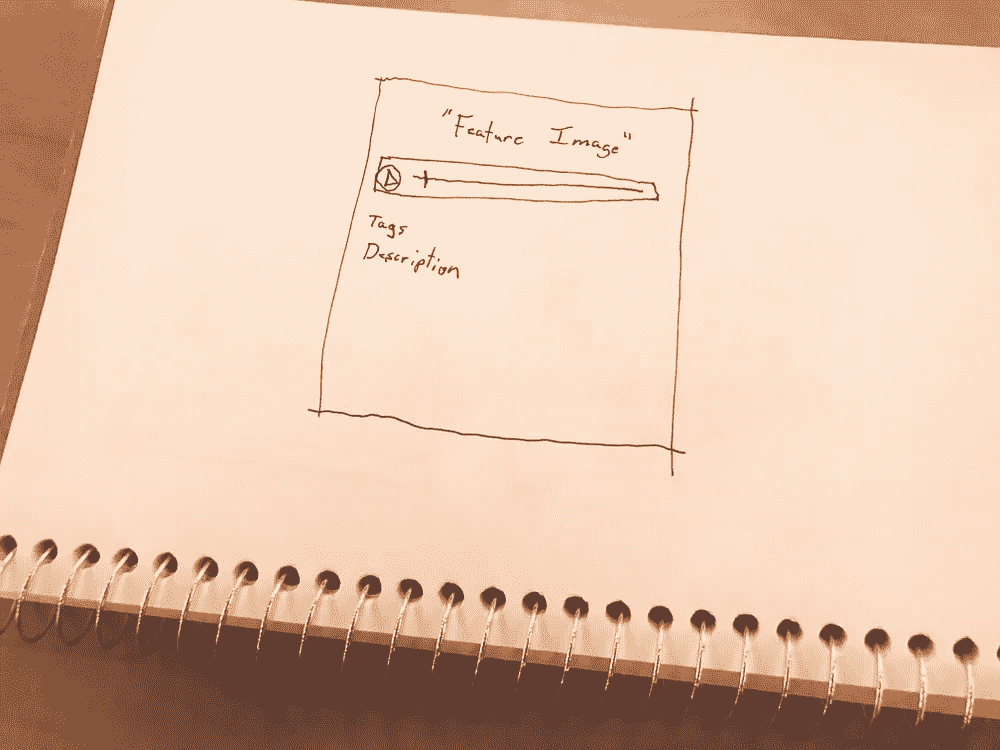 "Feature Image"
Tags
Description